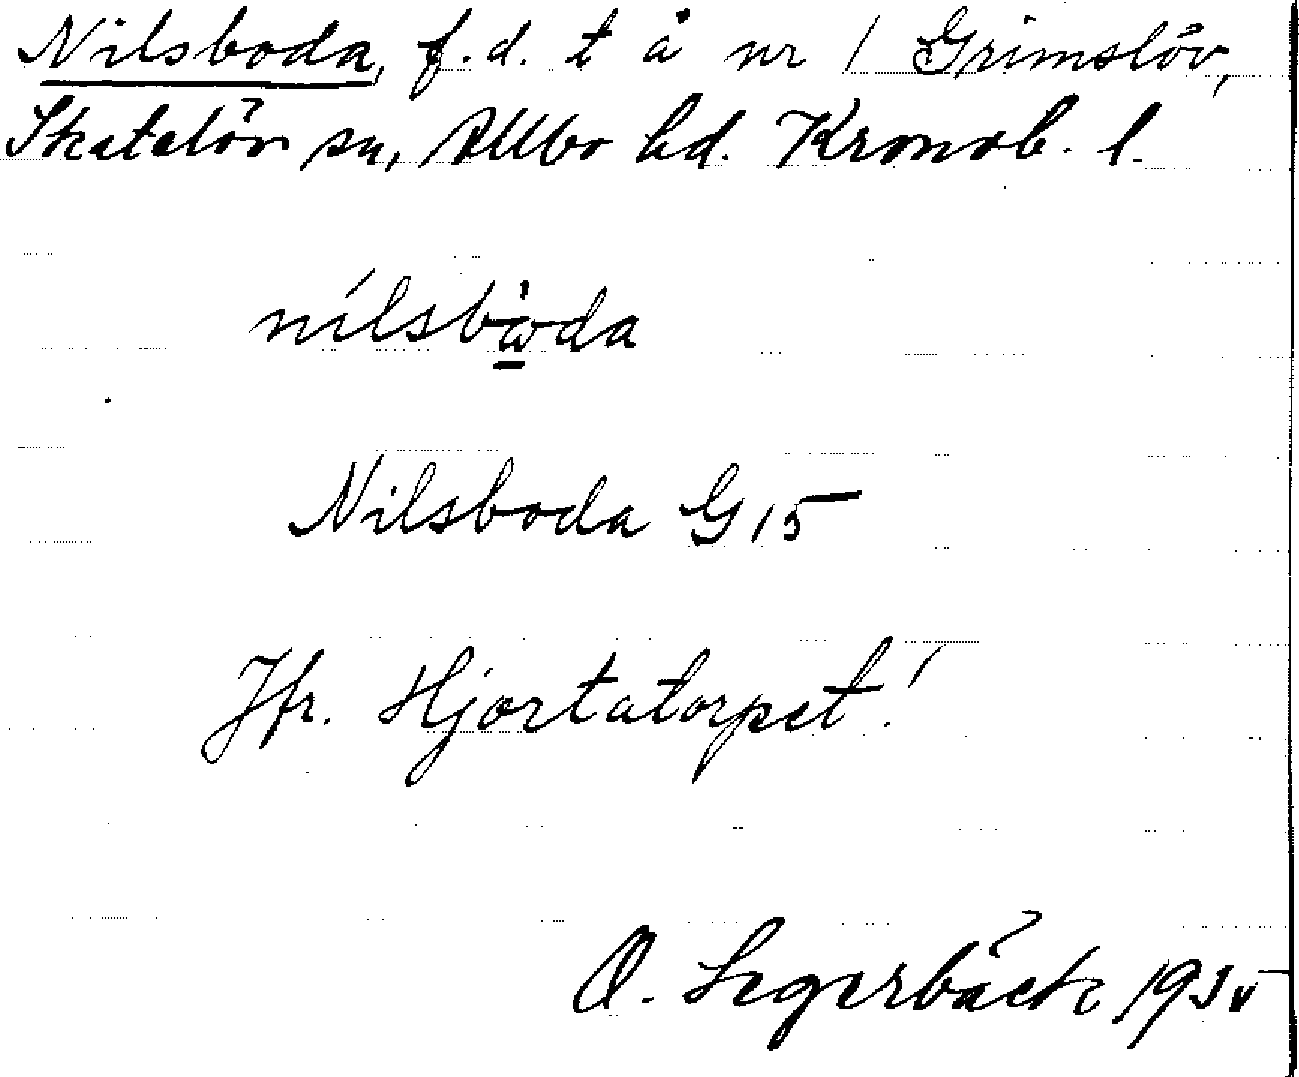 Nilsboda, f.d. t å nr 1 Grimslöv,
Skatelöv sn, Allbo hd. Kronob. l.
Nilsboda G 15
Jfr. Hjortatorpet!
O. Segerbäck